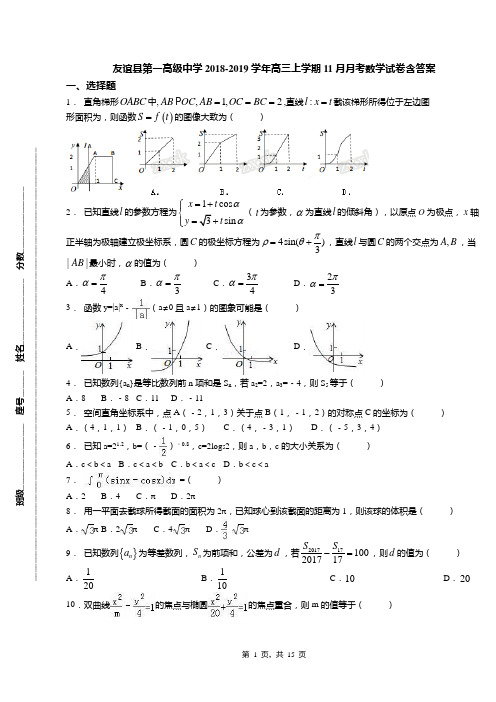 友谊县第一高级中学 2018-2019 学年高三上学期 11 月月考数学试卷含答案
一、选择题
1． 直角梯形 OABC 中, AB P OC, AB = 1, OC = BC = 2 ,直线 l : x = t 截该梯形所得位于左边图
形面积为，则函数 S = f (t) 的图像大致为（ ）
2． 已知直线 l 的参数方程为 { x = 1 + t cos α y = √3 + t sin α （ t 为参数， α 为直线 l 的倾斜角），以原点 O 为极点， x 轴
正半轴为极轴建立极坐标系，圆 C 的极坐标方程为 ρ = 4sin(θ + π/3) ，直线 l 与圆 C 的两个交点为 A, B ，当
| AB | 最小时， α 的值为（ ）
A． α = π/4 B． α = π/3 C． α = 3π/4 D． α = 2π/3
3． 函数 y=|a|ˣ﹣1/|a|（a≠0 且 a≠1）的图象可能是（ ）
A． B． C． D．
4． 已知数列{aₙ}是等比数列前 n 项和是 Sₙ，若 a₂=2，a₃=﹣4，则 S₅ 等于（ ）
A．8 B．﹣8 C．11 D．﹣11
5． 空间直角坐标系中，点 A（﹣2，1，3）关于点 B（1，﹣1，2）的对称点 C 的坐标为（ ）
A．（4，1，1） B．（﹣1，0，5） C．（4，﹣3，1） D．（﹣5，3，4）
6． 已知 a=2^1.2，b=（﹣1/2）^﹣0.8，c=2log₅2，则 a，b，c 的大小关系为（ ）
A．c＜b＜a B．c＜a＜b C．b＜a＜c D．b＜c＜a
7． ∫₀^π (sinx − cosx)dx =（ ）
A．2 B．4 C．π D．2π
8． 用一平面去截球所得截面的面积为 2π，已知球心到该截面的距离为 1，则该球的体积是（ ）
A．√3π B．2√3π C．4√3π D．4/3√3π
9． 已知数列{aₙ}为等差数列， Sₙ 为前项和，公差为 d ，若 S₂₀₁₇/2017 − S₁₇/17 = 100 ，则 d 的值为（ ）
A． 1/20 B． 1/10 C． 10 D． 20
10．双曲线 x²/m − y²/4 =1 的焦点与椭圆 x²/20 + y²/4 =1 的焦点重合，则 m 的值等于（ ）
班级 座号 姓名 分数
第 1 页, 共 15 页